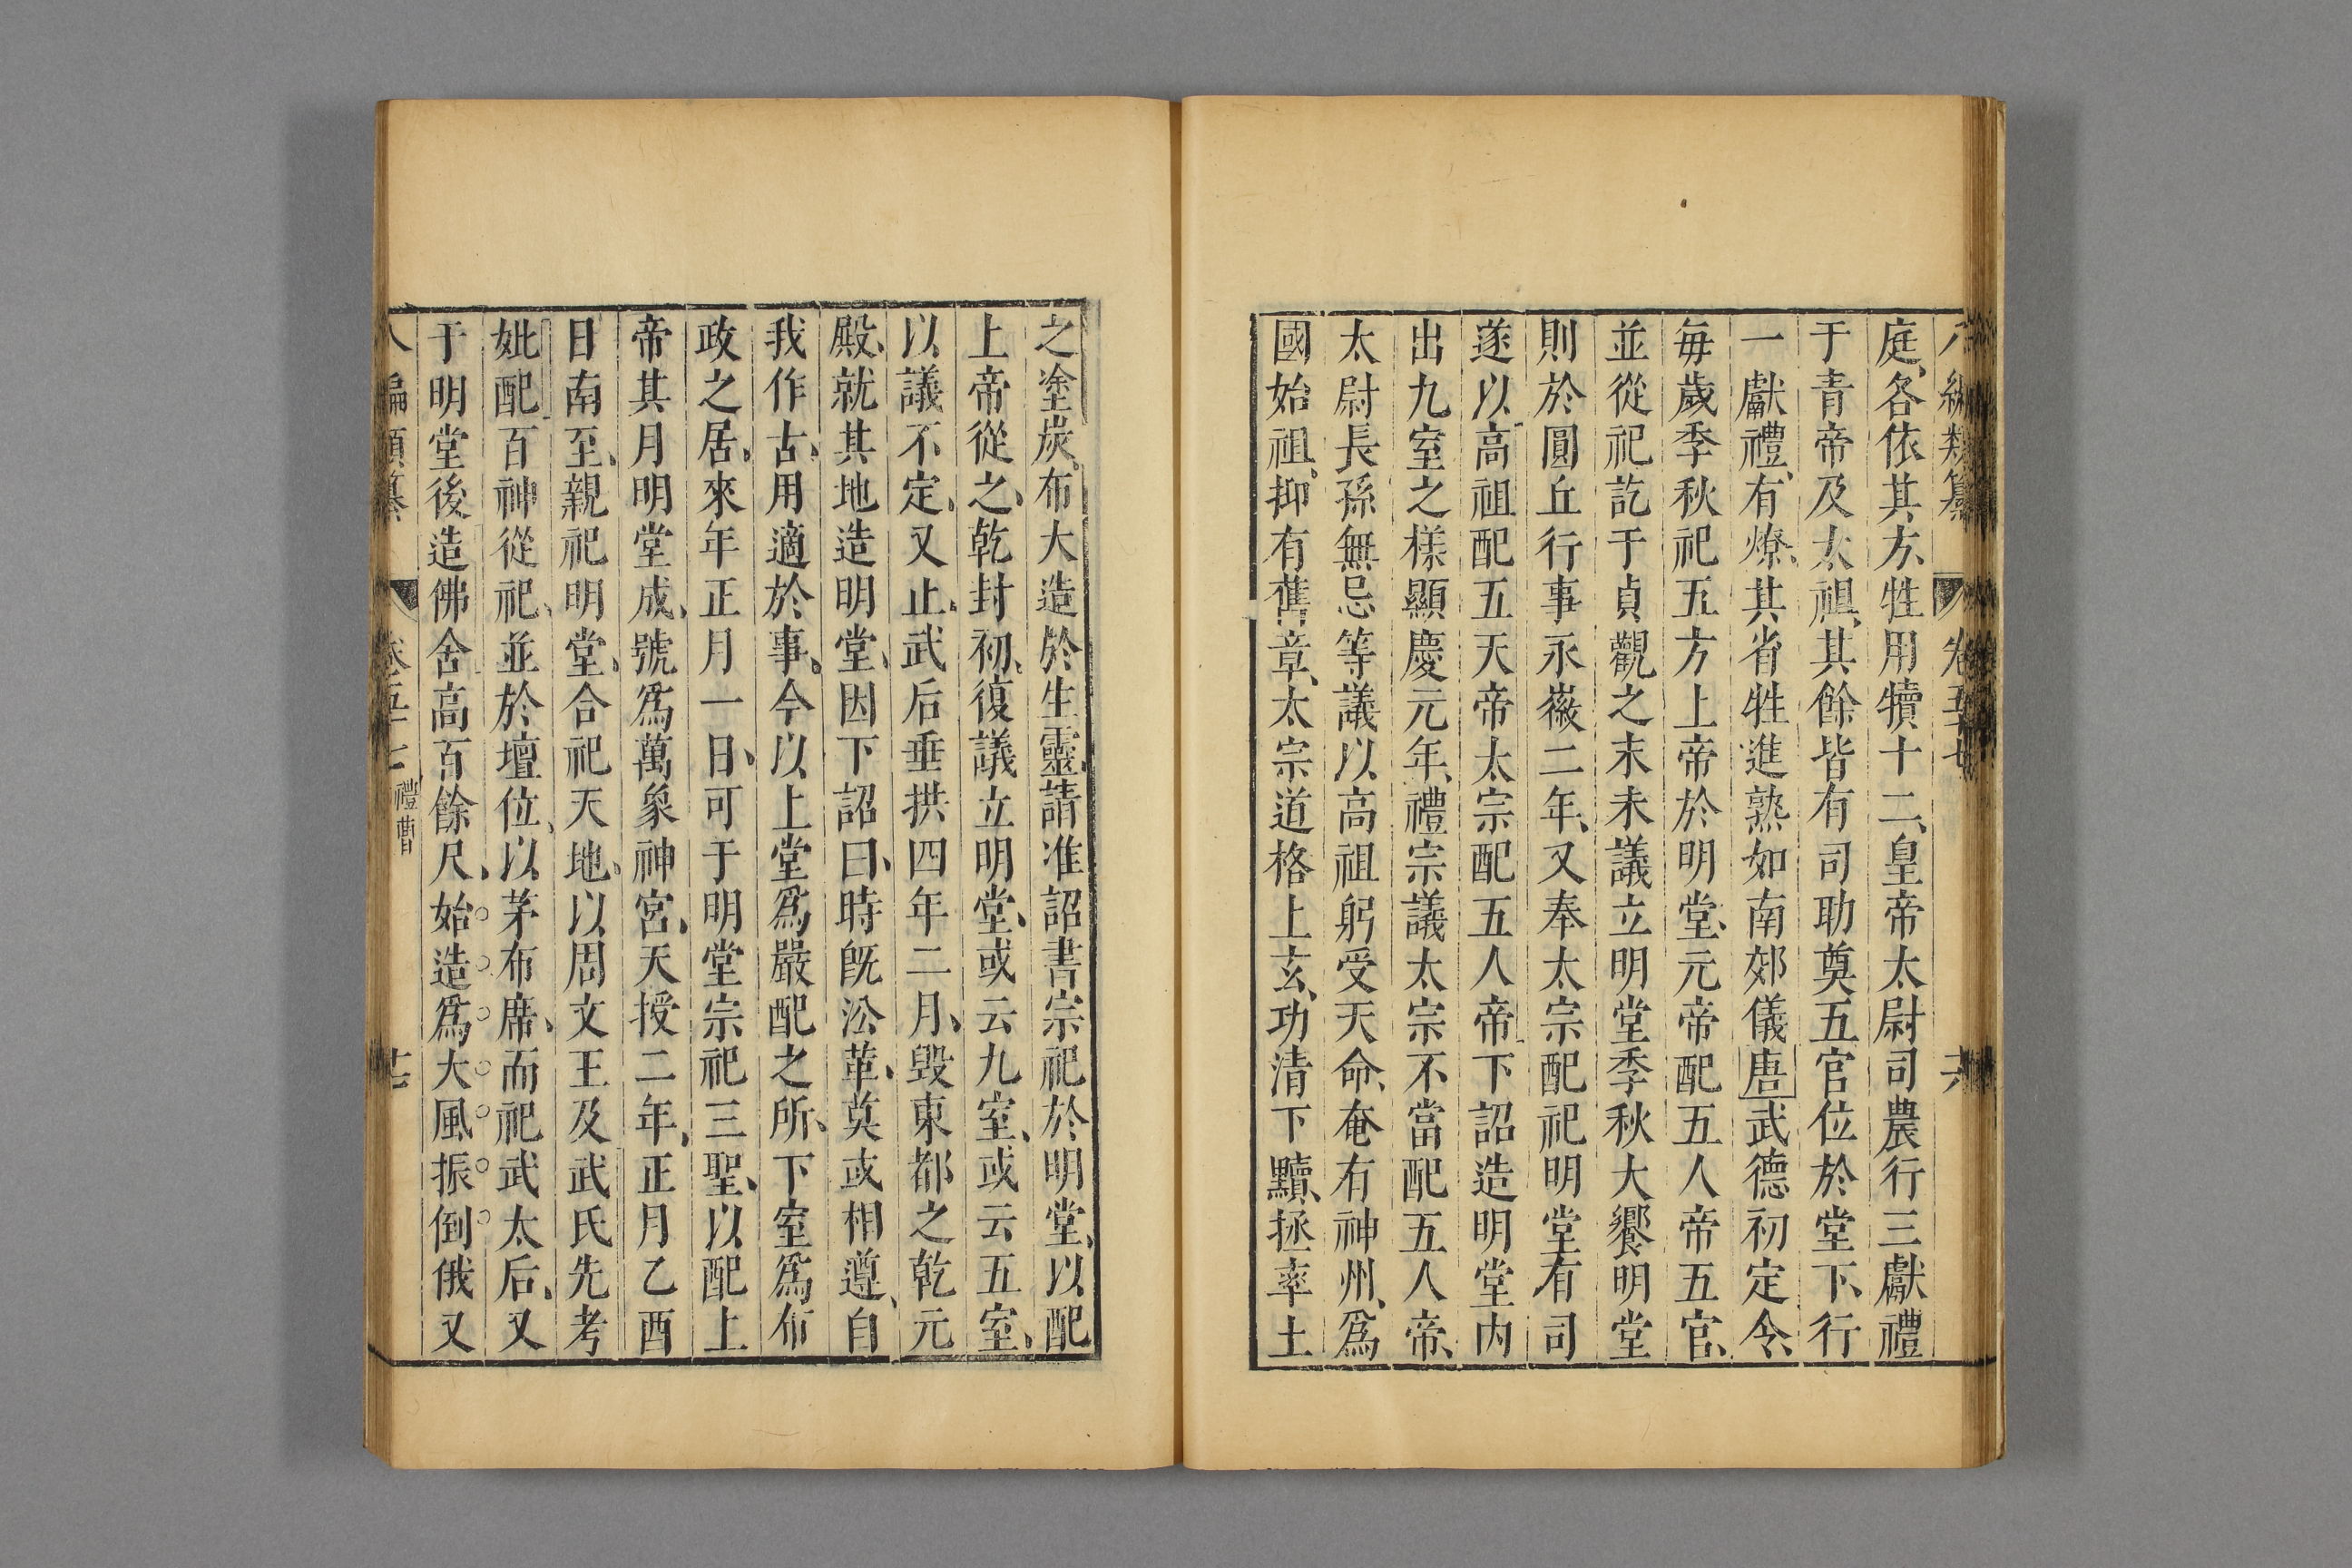 編類纂 卷五十七 十六
庭、各依其方、牲用犢十二、皇帝太尉司農行三獻禮
于青帝及太祖、其餘皆有司助奠五官位於堂下、行
一獻禮、有燎、其省牲進熟如南郊儀唐武德初定令、
每歲季秋祀五方上帝於明堂、元帝配五人帝五官、
並從祀訖于貞觀之末未議立明堂季秋大饗明堂
則於圓丘行事永徽二年、又奉太宗配祀明堂有司
遂以高祖配五天帝太宗配五人帝下詔造明堂內
出九室之樣顯慶元年、禮宗議太宗不當配五人帝、
太尉長孫無忌等議以高祖躬受天命、奄有神州、爲
國始祖。抑有舊章、太宗道格上玄、功清下黷、拯率土
之塗炭。布大造於生靈請准詔書宗祀於明堂、以配
上帝從之、乾封初、復議立明堂、或云九室、或云五室、
以議不定、又止、武后垂拱四年二月、毀東都之乾元
殿、就其地造明堂、因下詔曰、時旣㳂革、莫或相遵、自
我作古、用適於事。今以上堂爲嚴配之所、下室爲布
政之居。來年正月一日、可于明堂宗祀三聖、以配上
帝其月明堂成、號爲萬象神宮、天授二年、正月乙酉
日南至、親祀明堂、合祀天地、以周文王及武氏先考
妣配百神從祀、並於壇位、以茅布席、而祀武太后、又
于明堂後造佛舍高百餘尺、始造爲大風振倒俄又
八編類纂 卷五十七 禮曹 十七